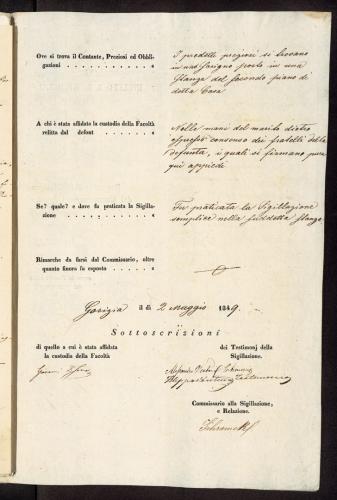 Ove si trova il Contante, Preziosi ed Obbli-
gazioni
I predetti preziosi si trovano
in uno scrigno posto in una
stanza del secondo piano di
detta Casa
A chi è stata affidata la custodia della Facoltà
relitta dal defont
Nelle mani del marito dietro
espresso consenso dei fratelli della
defunta, i quali si firmano pure
qui appiedi
Se? quale? e dove fu praticata la Sigilla-
zione
Fu praticata la Sigillazione
semplice nella suddetta stanza
Rimarche da farsi dal Commissario, oltre
quanto finora fu esposto
Gorizia il dì 2 Maggio 1849.
Sottoscrizioni
di quello a cui è stata affidata
la custodia della Facoltà
dei Testimonj della
Sigillazione.
Commissario alla Sigillazione,
e Relazione.